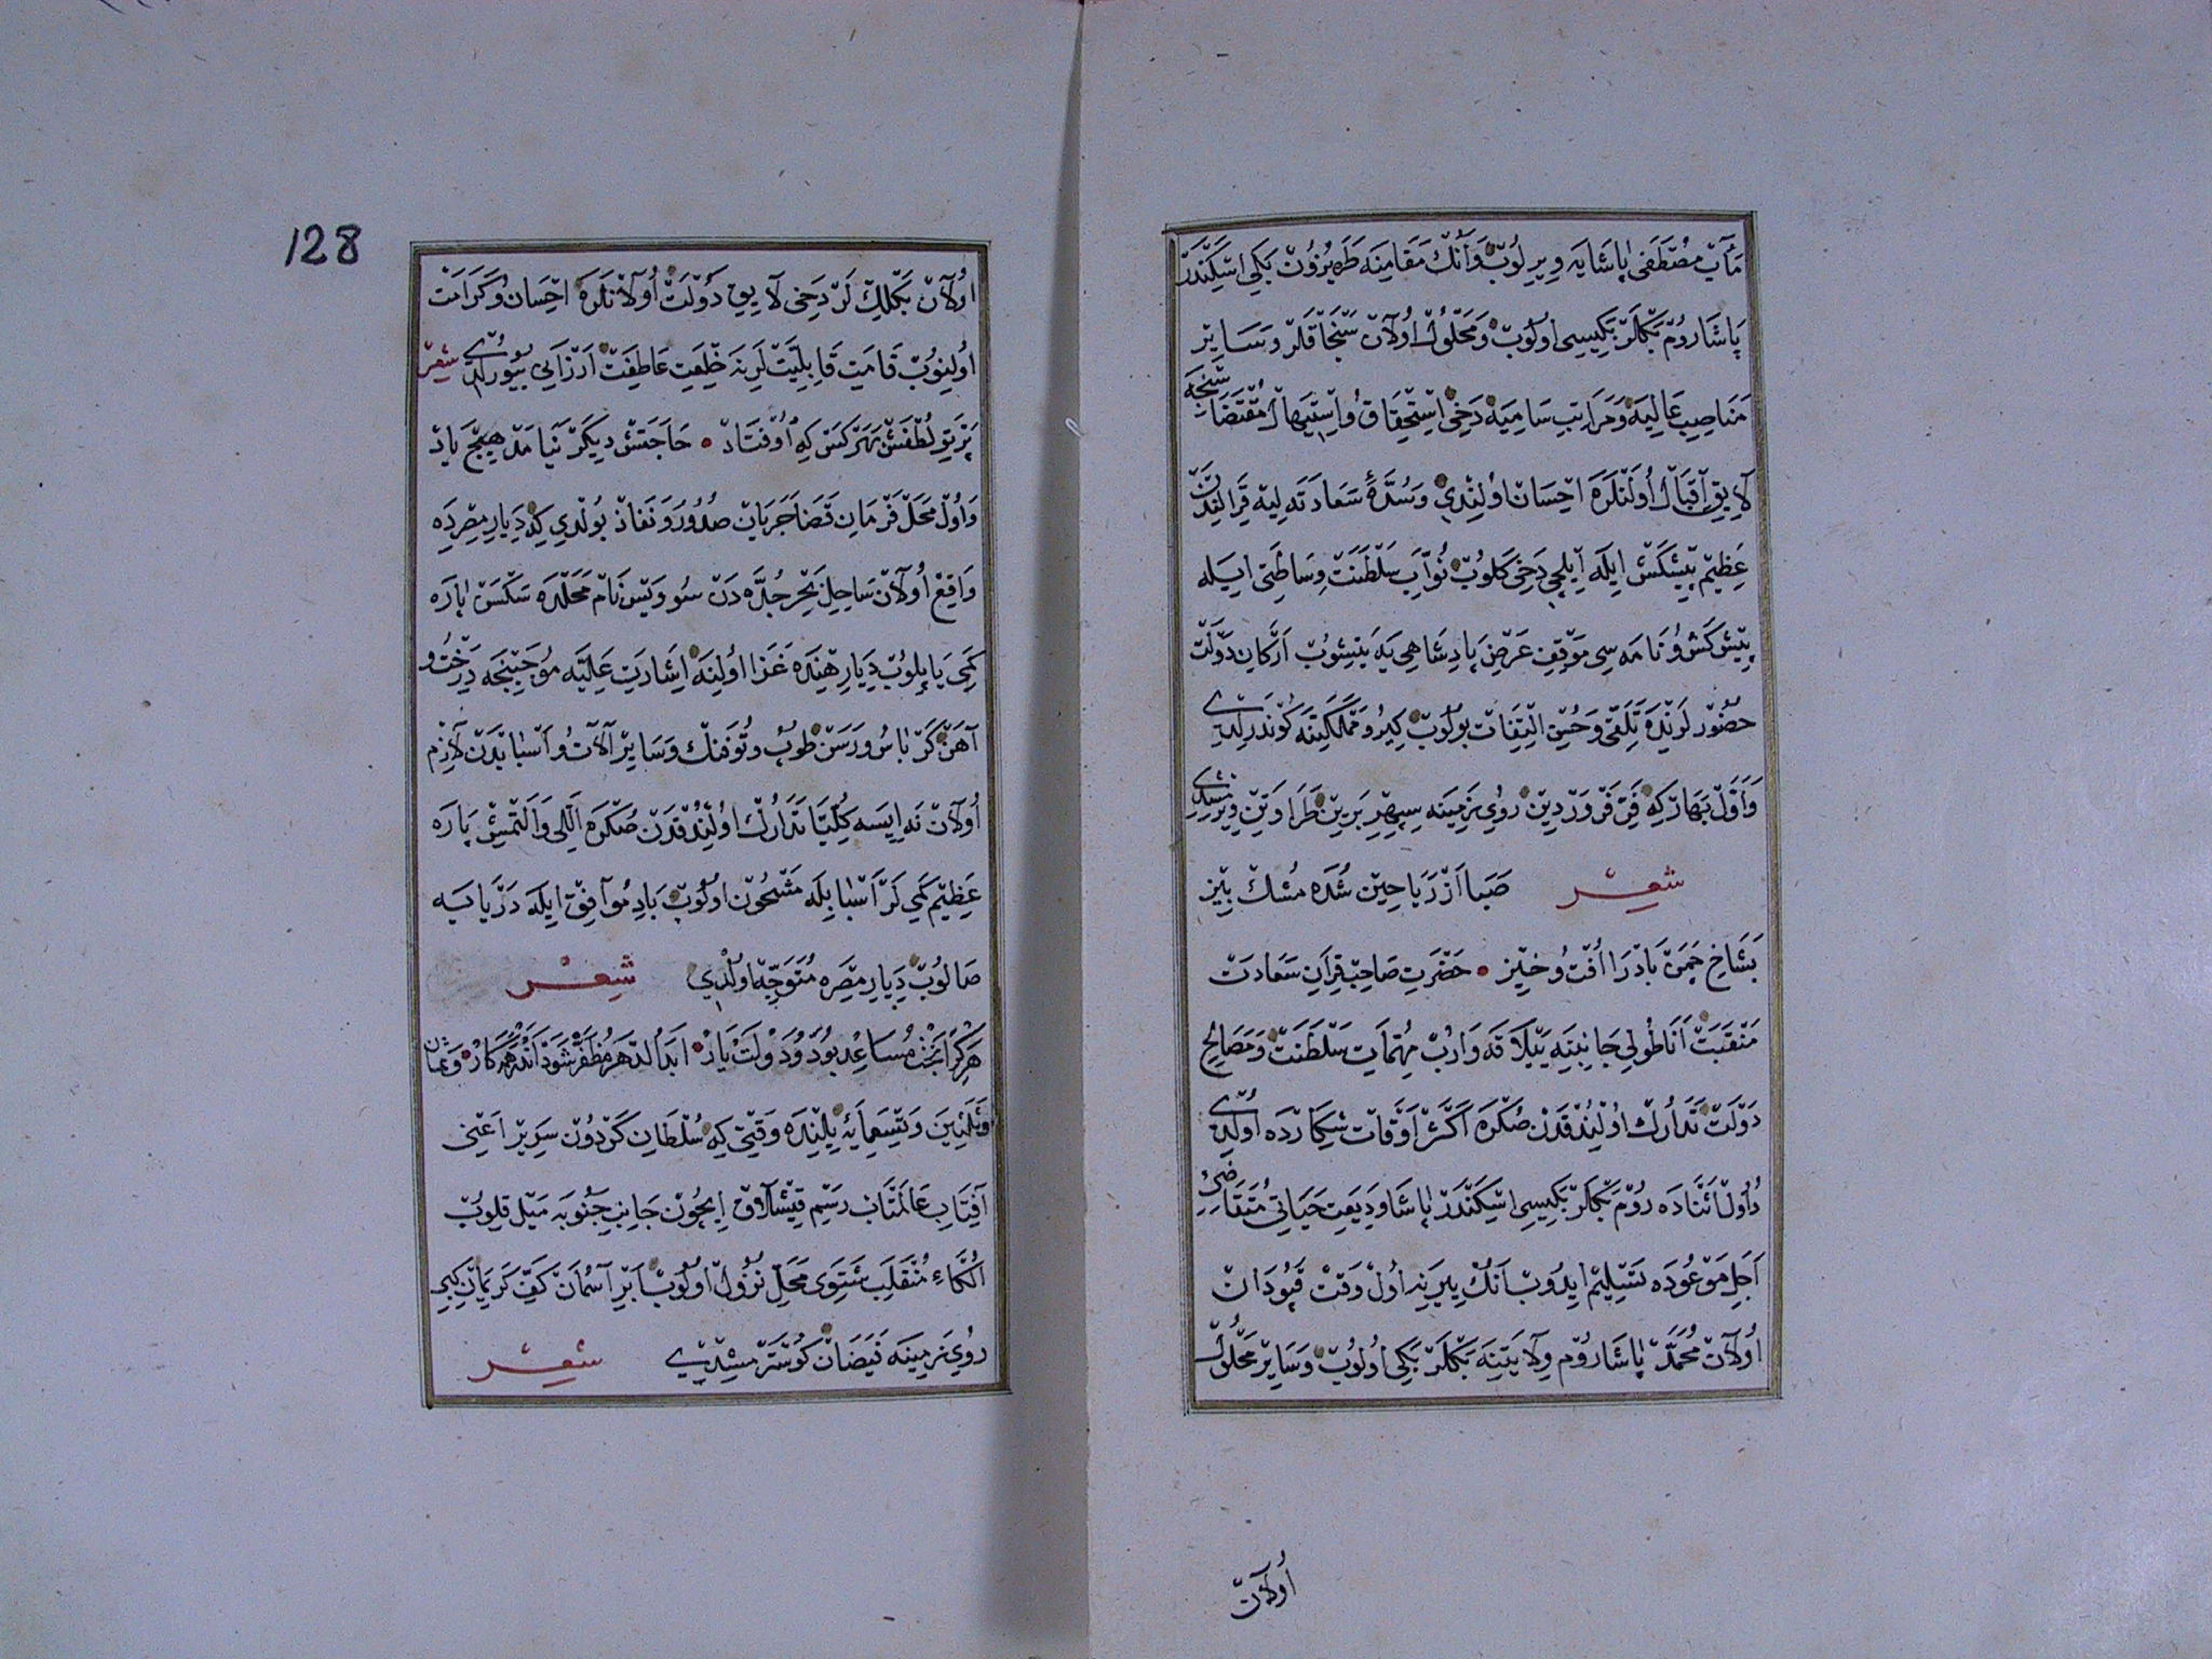 مآب مصطفى پاشايه ويريلوب وانك مقامينه طربزون بكى اسكندر
پاشا روم بكلر بكيسى اولوب ومحلول اولان سنجاقلر وساير
مناصب عاليه ومراتب ساميه دخى استحقاق واستيهال مقتضاسنجه
لايق اقبال اولنلره احسان اولندى وسده سعادته ليه قرالندن
عظيم پيشكش ايله ايلچى دخى كلوب نواب سلطنت وساطتى ايله
پيشكش ونامه سى موقف عرض پادشاهى يه يتيشوب اركان دولت
حضورلرنده تلقى وحسن التفات بولوب كيرو مملكتنه كوندرلدى
واول بهار كه فى فروردين روى زمينه سپهر برين طراوتن ويرمشدى
شعر صبا از رياحين شده مشك بيز
بشاخ چمن باد را افت وخيز حضرت صاحب قران سعادت
منقبت اناطولى جانبنه ييلاقه وارب مهمات سلطنت ومصالح
دولت تدارك اولندقدن صكره اكثر اوقات شكارده اولدى
واول اثناده روم بكلر بكيسى اسكندر پاشا وديعت حياتى متقاضى
اجل موعوده تسليم ايدوب انك يرينه اول وقت قپودان
اولان محمد پاشا روم ولايتنه بكلر بكى اولوب وساير محلول
اولان
128
اولان بكلكلر دخى لايق دولت اولانلره احسان وكرامت
اولنوب قامت قابليتلرينه خلعت عاطفت ارزانى بيورلدى شعر
پرتو لطفش بهركس كه اوفتاد حاجتش ديكر نيامد هيچ ياد
واول محل فرمان قضا جريان صدور ونفاذ بولدى كه ديار مصرده
واقع اولان ساحل بحر جده دن سوويس نام محلده سكسن پاره
كمى ياپيلوب ديار هنده غزا اولنه اشارت عليه موجبنجه درخت و
آهن كرباس ورسن طوپ وتوفنك وساير آلات واسبابدن لازم
اولان نه ايسه كليا تدارك اولندقدن صكره اللى والتمش پاره
عظيم كمى لر اسبابله مشحون اولوب باد موافق ايله دريايه
صالوب ديار مصره متوجه اولدى شعر
هركرا بخت مساعد بود ودولت يار ابد الدهر مظفر شود اندر همه كار وثمان
وثلثين وتسعمايه يلنده وقتى كه سلطان كردون سرير اعنى
آفتاب عالمتاب رسم قيشلاق ايچون جانب جنوبه ميل قلوب
الكاء منقلب شتوى محل نزول اولوب ابر آسمان كف كريمان كبى
روى زمينه فيضان كوسترمشدى شعر